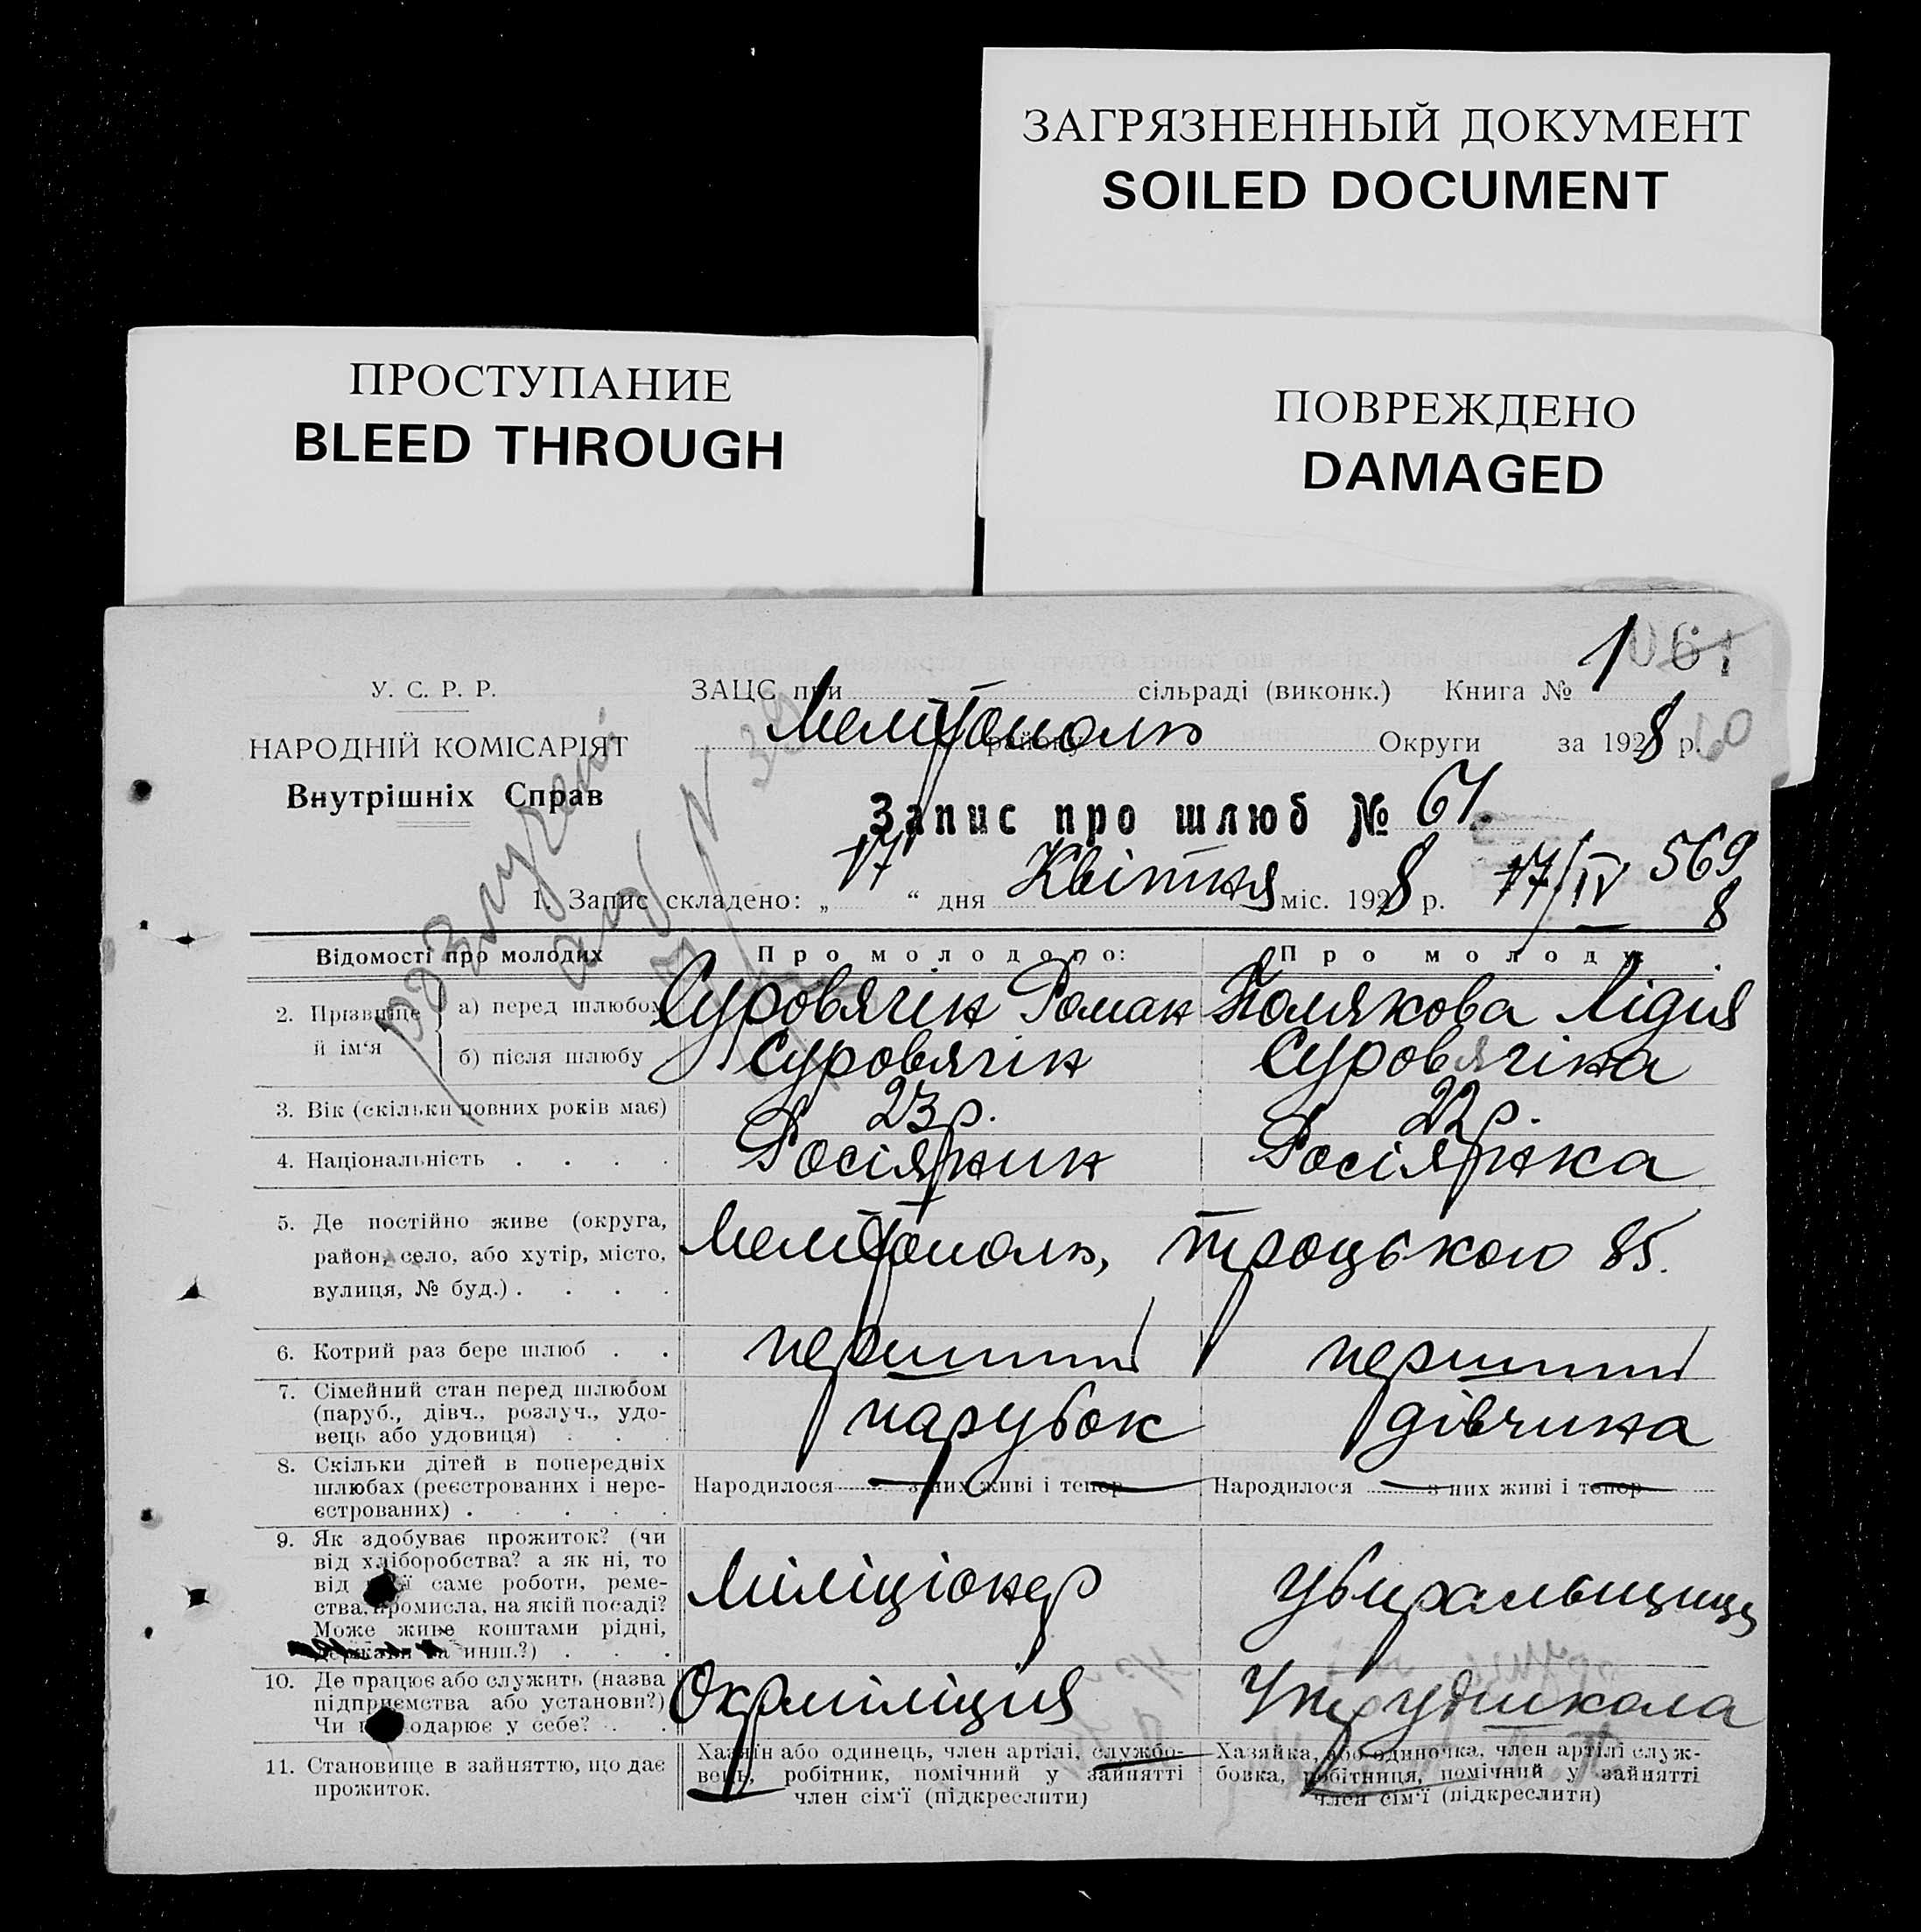 ЗАГРЯЗНЕННЫЙ ДОКУМЕНТ
SOILED DOCUMENT
ПРОСТУПАНИЕ
BLEED THROUGH
ПОВРЕЖДЕНО
DAMAGED
У. С. Р. Р.
НАРОДНІЙ КОМІСАРІЯТ
Внутрішніх Справ
ЗАЦС при сільраді (виконк.) Книга № 1
Мелітополь району Округи за 1928 р. 60
Запис про шлюб № 61.
1. Запис складено: „17“ дня Квітня міс. 1928 р. 17/IV 569
8
розлучені
акт N 39
Відомості про молодих
Про молодого:
Про молоду:
2. Прізвище й ім'я
а) перед шлюбом Суровягін Роман Полякова Лідия
б) після шлюбу Суровягін Суровягіна
3. Вік (скільки повних років має) 23 р. 22 р.
4. Національність . . . . Росіянин Росіянка
5. Де постійно живе (округа,
район, село, або хутір, місто,
вулиця, № буд.) . . . .
Мелітополь, Троцького 85.
6. Котрий раз бере шлюб . . перший перший
7. Сімейний стан перед шлюбом
(паруб., дівч., розлуч., удо-
вець або удовиця) . . .
парубок дівчина
8. Скільки дітей в попередніх
шлюбах (реєстрованих і нере-
єстрованих) . . . . .
Народилося — з них живі і тепер —
Народилося — з них живі і тепер —
9. Як здобуває прожиток? (чи
від хліборобства? а як ні, то
від саме роботи, реме-
ства, промисла, на якій посаді?
Може живе коштами рідні,
держави та инш.?) . . .
Міліціонер Убиральщиця
10. Де працює або служить (назва
підприємства або установи?)
Чи господарює у себе? . .
Окрміліция Утрудшкола
11. Становище в зайняттю, що дає
прожиток.
Хазяїн або одинець, член артілі, службо-
вець, робітник, помічний у зайнятті
член сім'ї (підкреслити)
Хазяйка, або одиночка, член артілі служ-
бовка, робітниця, помічний у зайнятті
член сім'ї (підкреслити)